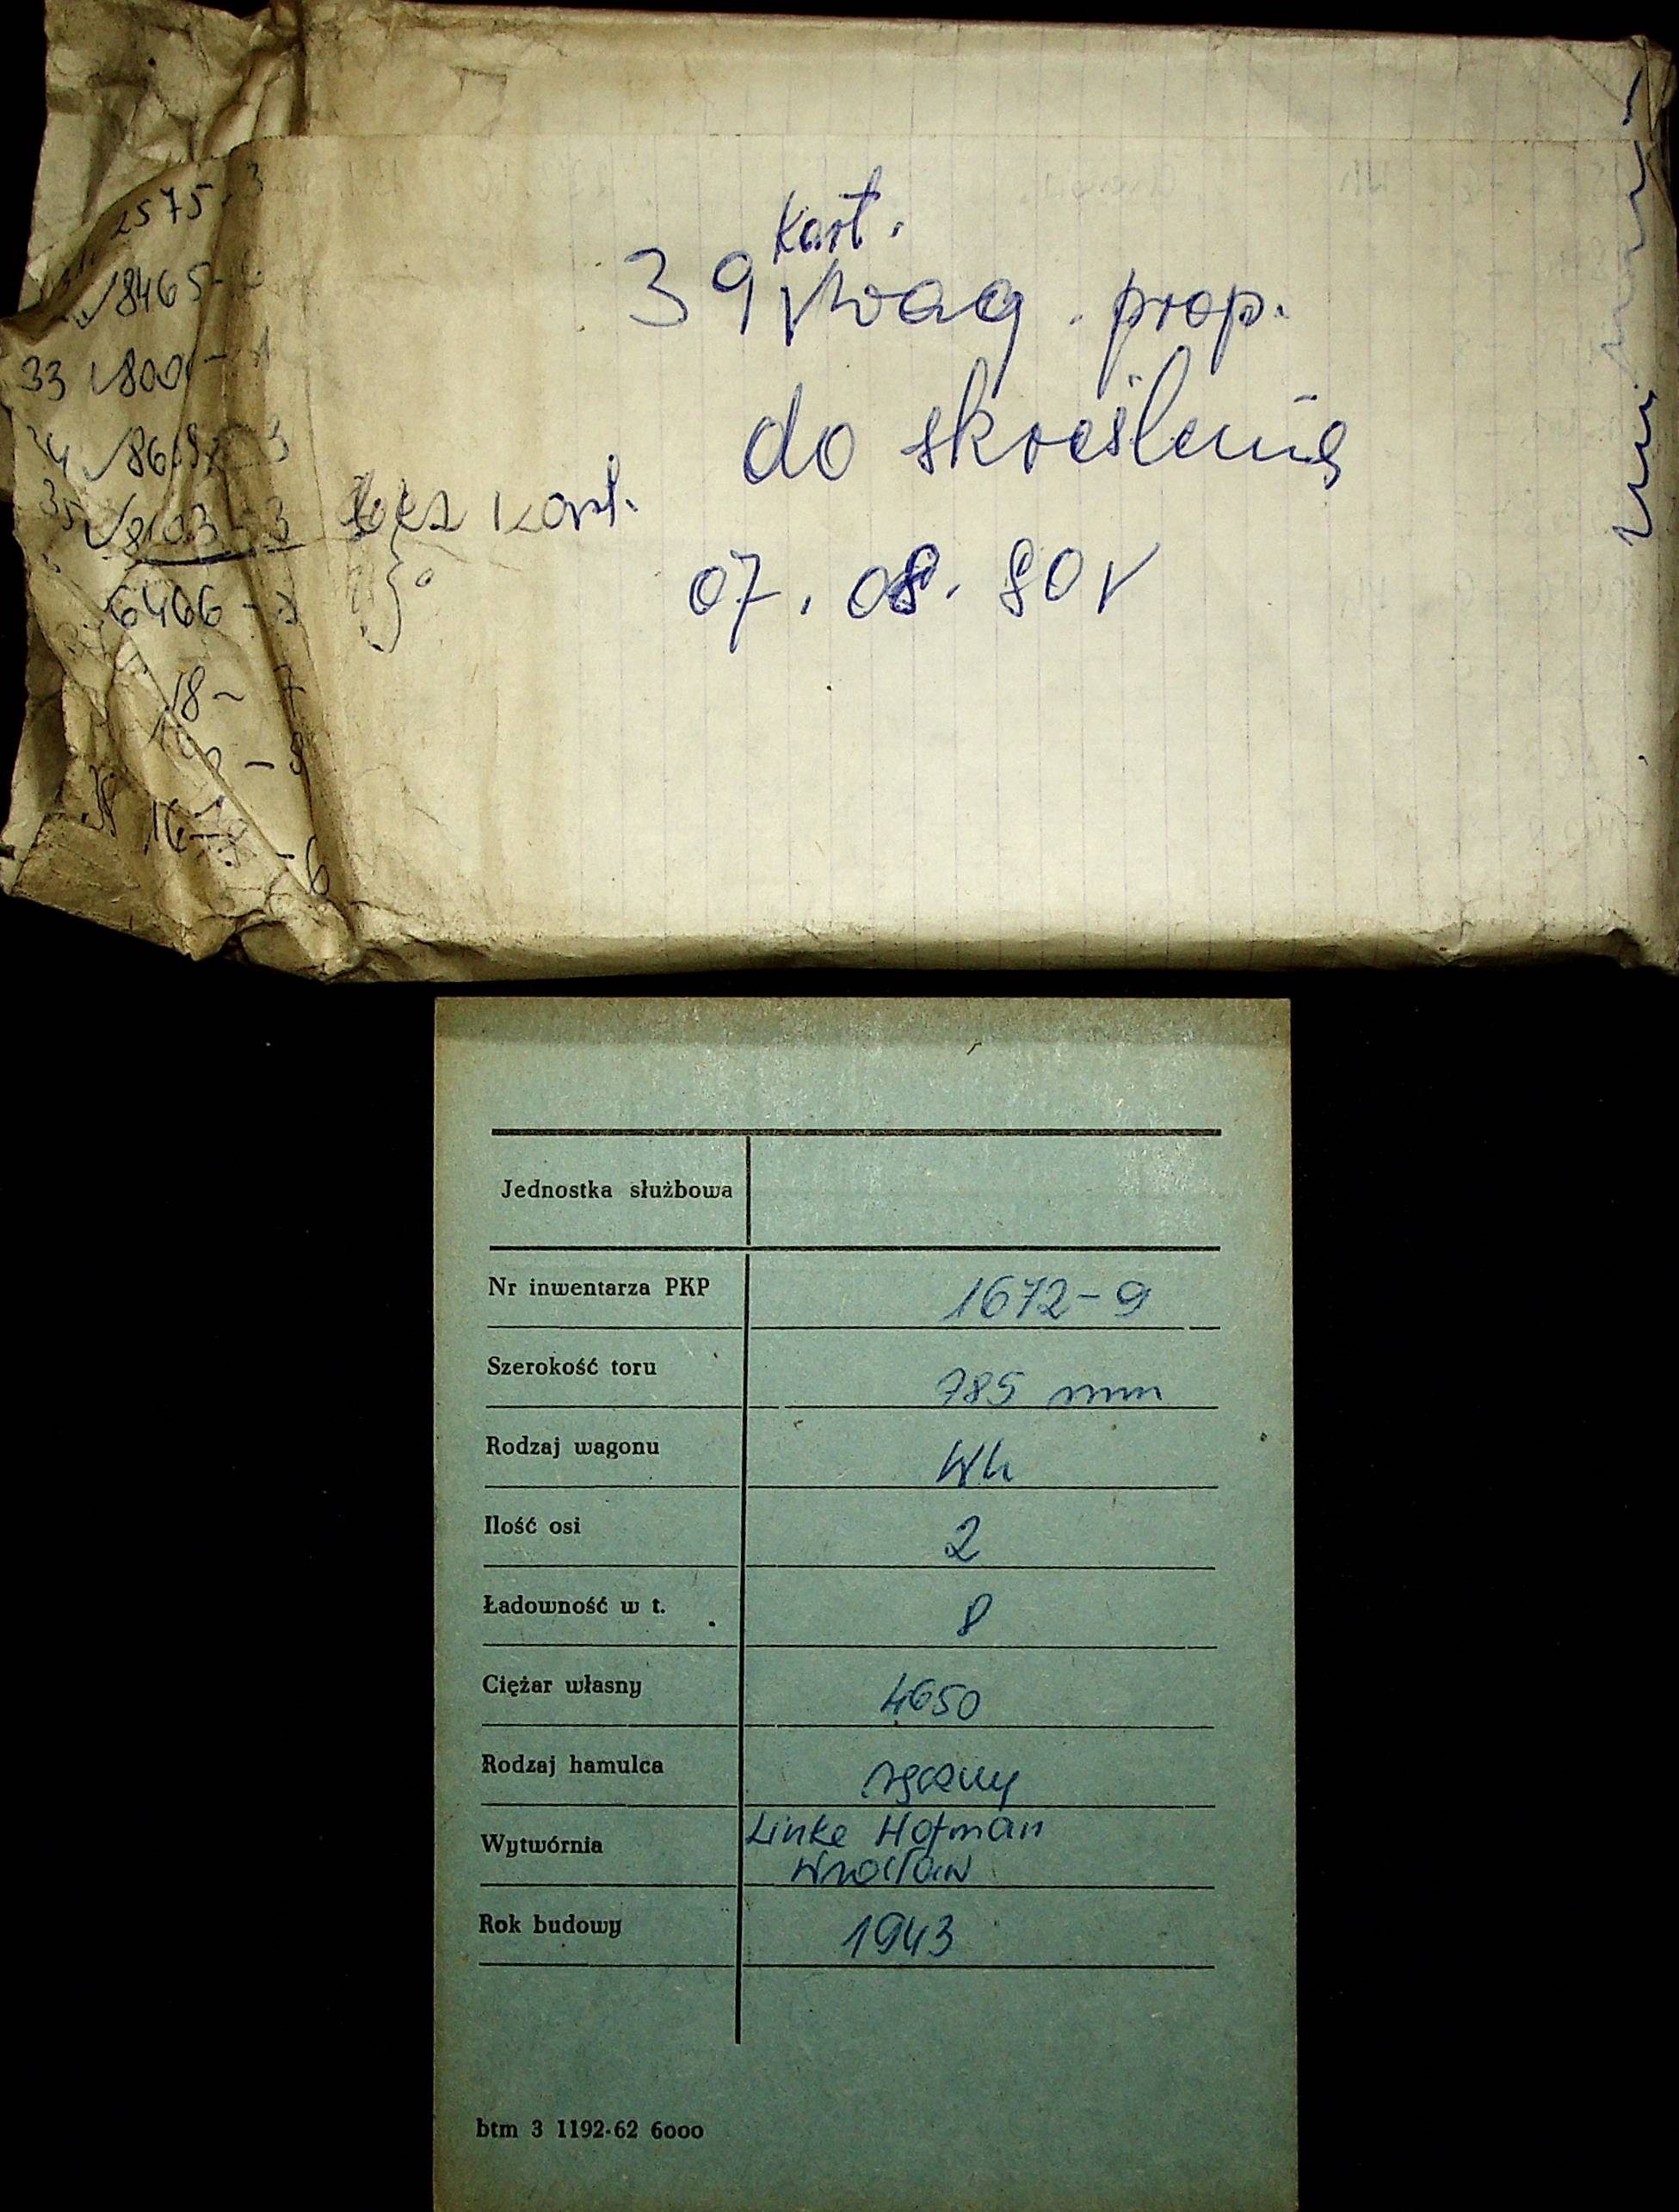 2575-3
8465-
33 800 -
8103-3 bez kart.
6466 -
18 - 7
- 8
16
- 6
kart.
39 wag. prop.
do skreślenia
07. 08. 80 r
Jednostka służbowa
Nr inwentarza PKP 1672-9
Szerokość toru 785 mm
Rodzaj wagonu Wh
Ilość osi 2
Ładowność w t. 8
Ciężar własny 4650
Rodzaj hamulca ręczny
Wytwórnia Linke Hofman
Wrocław
Rok budowy 1943
btm 3 1192-62 6000